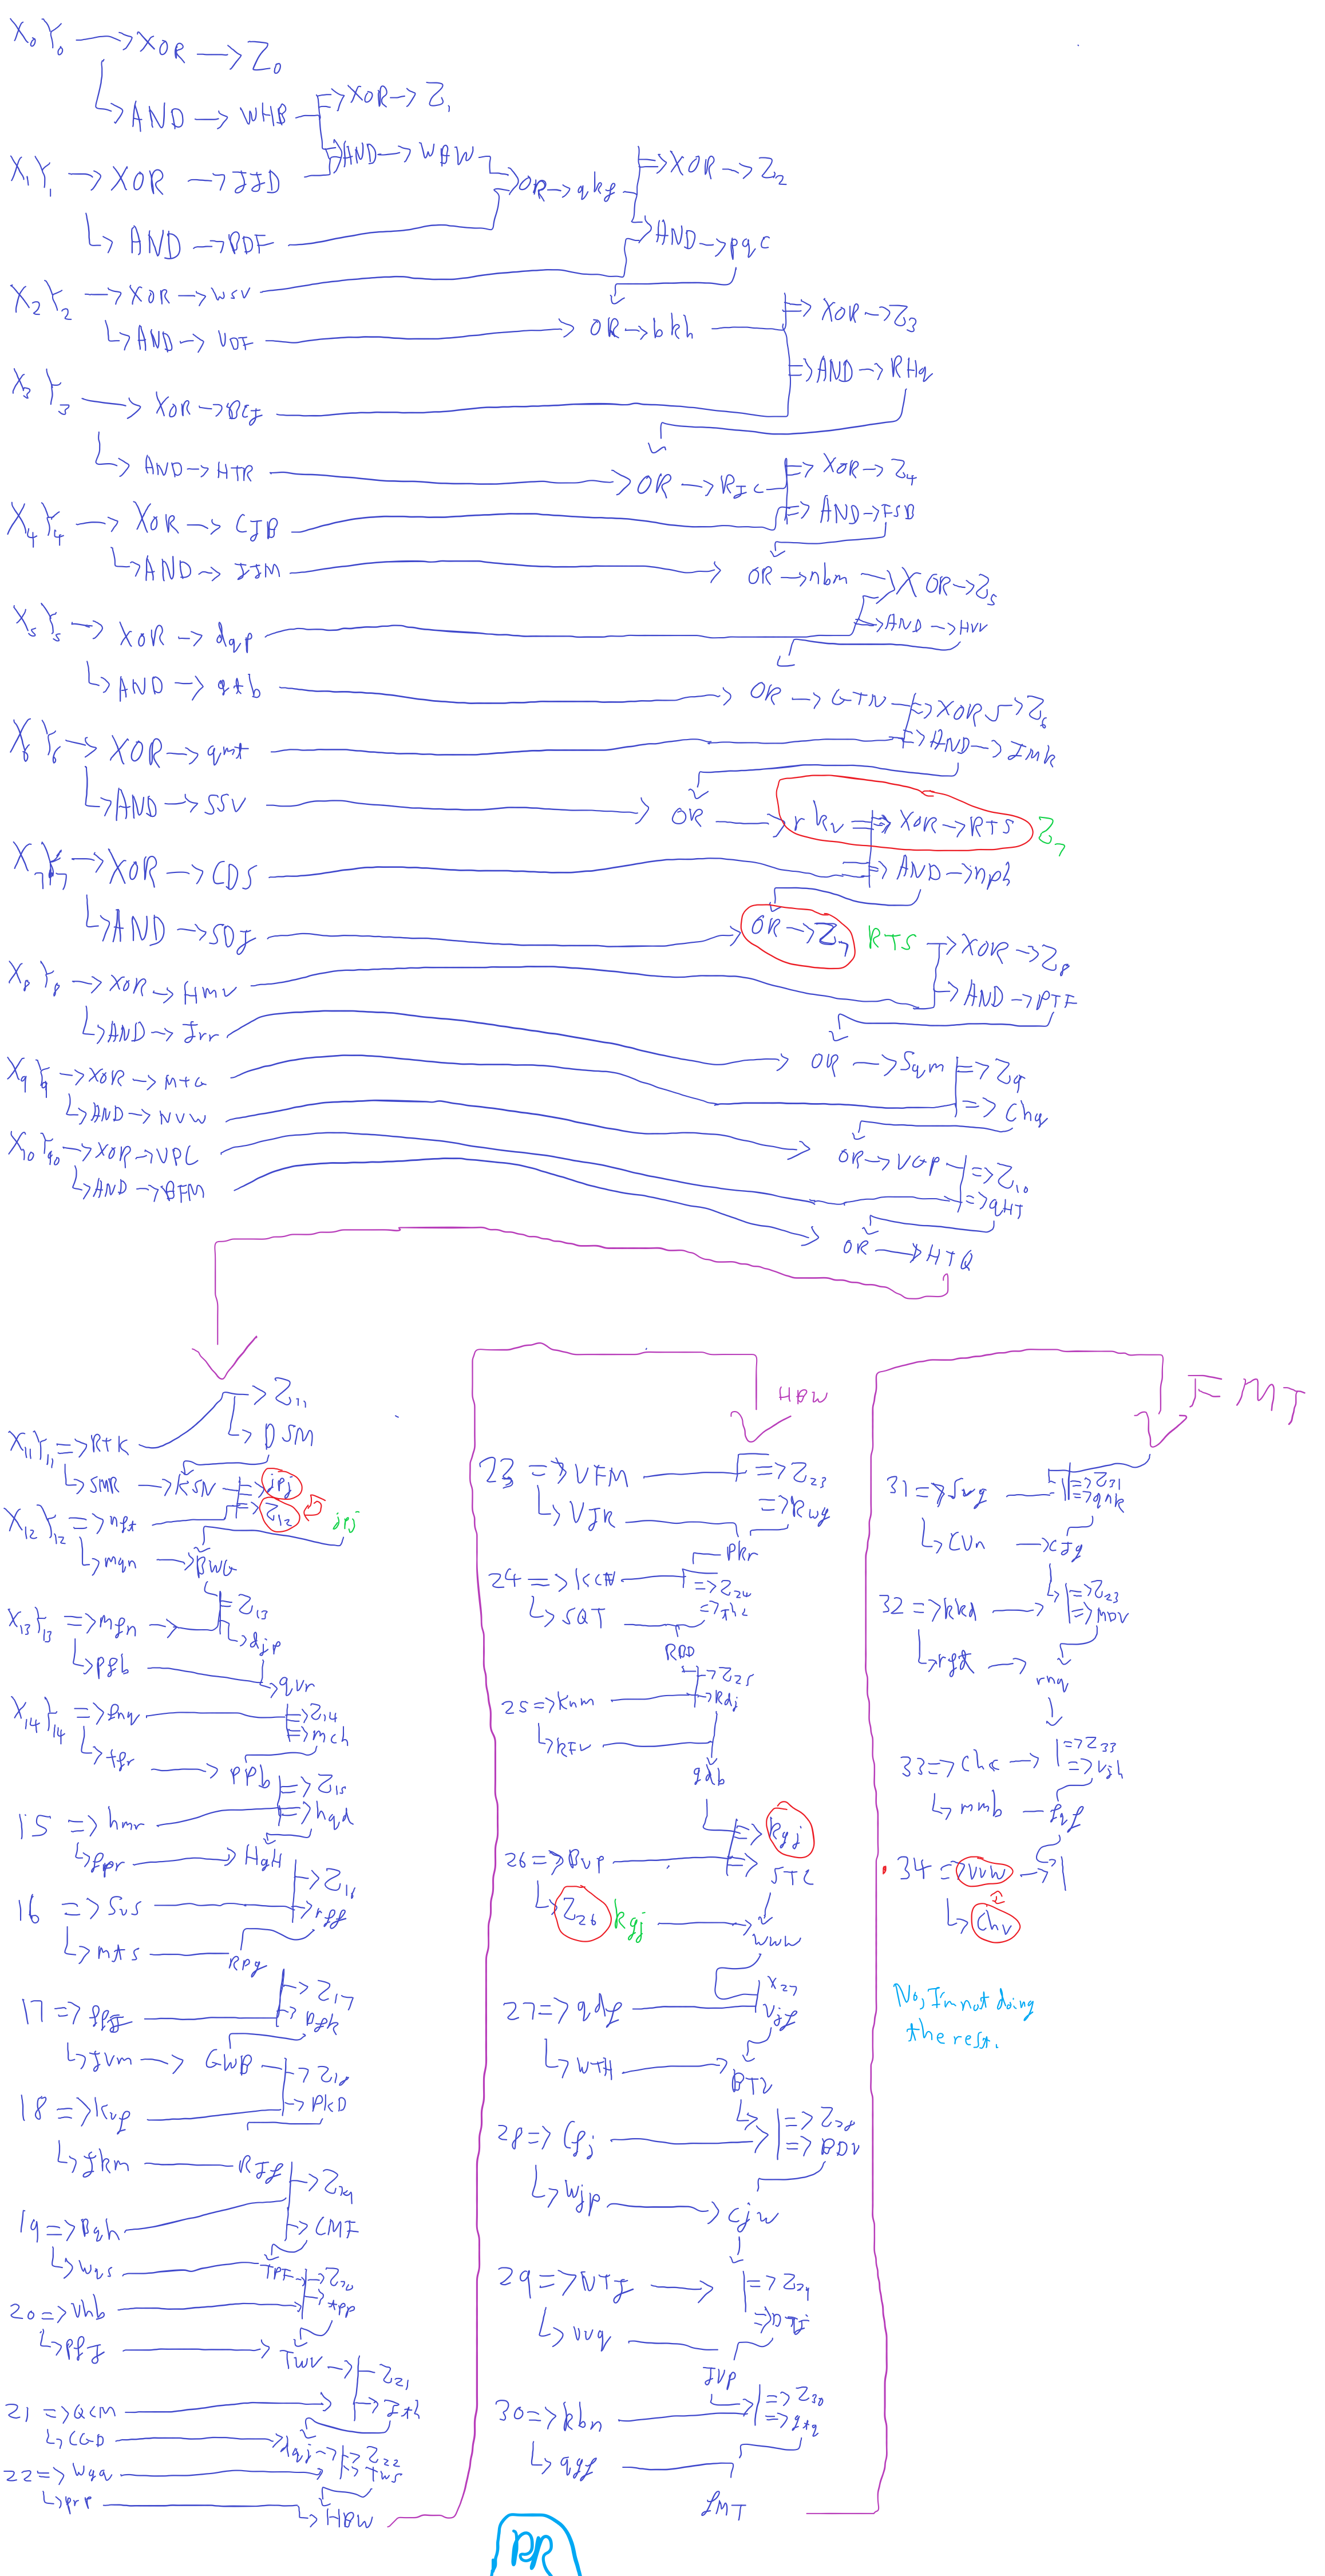 X0 Y0 → XOR → Z0
↳ AND → WHB ⇒ XOR → Z1
⇒ AND → WBW
X1 Y1 → XOR → JJD
OR → qkf
⇒ XOR → Z2
↳ AND → BDF
AND → pqc
X2 Y2 → XOR → WSV
↳ AND → VDF → OR → bkh
⇒ XOR → Z3
⇒ AND → RHq
X3 Y3 → XOR → BCJ
↳ AND → HTR → OR → RJC
⇒ XOR → Z4
⇒ AND → FSB
X4 Y4 → XOR → CJB
↳ AND → JJM → OR → nbm → XOR → Z5
→ AND → HVV
X5 Y5 → XOR → dqp
↳ AND → qtb → OR → GTN ⇒ XOR → Z6
⇒ AND → Jmk
X6 Y6 → XOR → qmt
↳ AND → SSV → OR → rkv ⇒ XOR → RTS Z7
⇒ AND → nph
X7 Y7 → XOR → CDS
↳ AND → SDJ → OR → Z7 RTS → XOR → Z8
→ AND → PTF
X8 Y8 → XOR → HMV
↳ AND → Jrr → OR → Sqm ⇒ Z9
⇒ Chq
X9 Y9 → XOR → MTG
↳ AND → NVW → OR → VGP ⇒ Z10
⇒ qHT
X10 Y10 → XOR → VPC
↳ AND → BFM → OR → HTQ
→ Z11
↳ DSM
X11 Y11 ⇒ RTK
↳ SMR → KSN ⇒ jpj
⇒ Z12 jpj
X12 Y12 ⇒ nft
↳ mqn → BWG
Z13
↳ djp
X13 Y13 ⇒ mfn
↳ pgb → qvr
X14 Y14 ⇒ fnq ⇒ Z14
⇒ mch
↳ tfr → ppb → Z15
⇒ hqd
15 ⇒ hmr
↳ fpr → HgH
→ Z16
→ rff
16 ⇒ Svs
↳ mts RPg
→ Z17
17 ⇒
↳ JVM → GWB → Z18
→ PKD
18 ⇒ Kvf
↳ fkm RJf → Z19
→ CMF
19 ⇒ Bqh
↳ Wqs TPF → Z20
→ tpp
20 ⇒ Vhb
↳ PfJ → TWV → Z21
→ Jth
21 ⇒ QCM
↳ CGD → dqj → Z22
→ TWS
22 ⇒ Wqq
↳ prp → HBW
HBW
23 ⇒ VFM ⇒ Z23
⇒ Rwg
↳ VJR
pkr
24 ⇒ KCN ⇒ Z24
↳ SQT
RBD
→ Z25
→ Rdj
25 ⇒ Knm
↳ RFV
gdb
⇒ kgj
26 ⇒ Bvp ⇒ STC
↳ Z26 kgj → WWW
X27
27 ⇒ qdf vjf
↳ WTH → BTV
28 ⇒ Cfj ⇒ Z28
⇒ BDV
↳ Wjp → cjw
29 ⇒ NTJ → ⇒ Z29
⇒ ntj
↳ vvq
JVP
30 ⇒ kbn ⇒ Z30
⇒ gtq
↳ qgf
fMT
FMT
31 ⇒ Svg ⇒ Z31
⇒ qnk
↳ CVn → cJq
32 ⇒ kkd → ⇒ Z23
⇒ MDV
↳ rgt → rnq
33 ⇒ Chc → ⇒ Z33
⇒ vjh
↳ mmb fqf
34 ⇒ vvw →
↳ Chv
No, I'm not doing
the rest.
PR